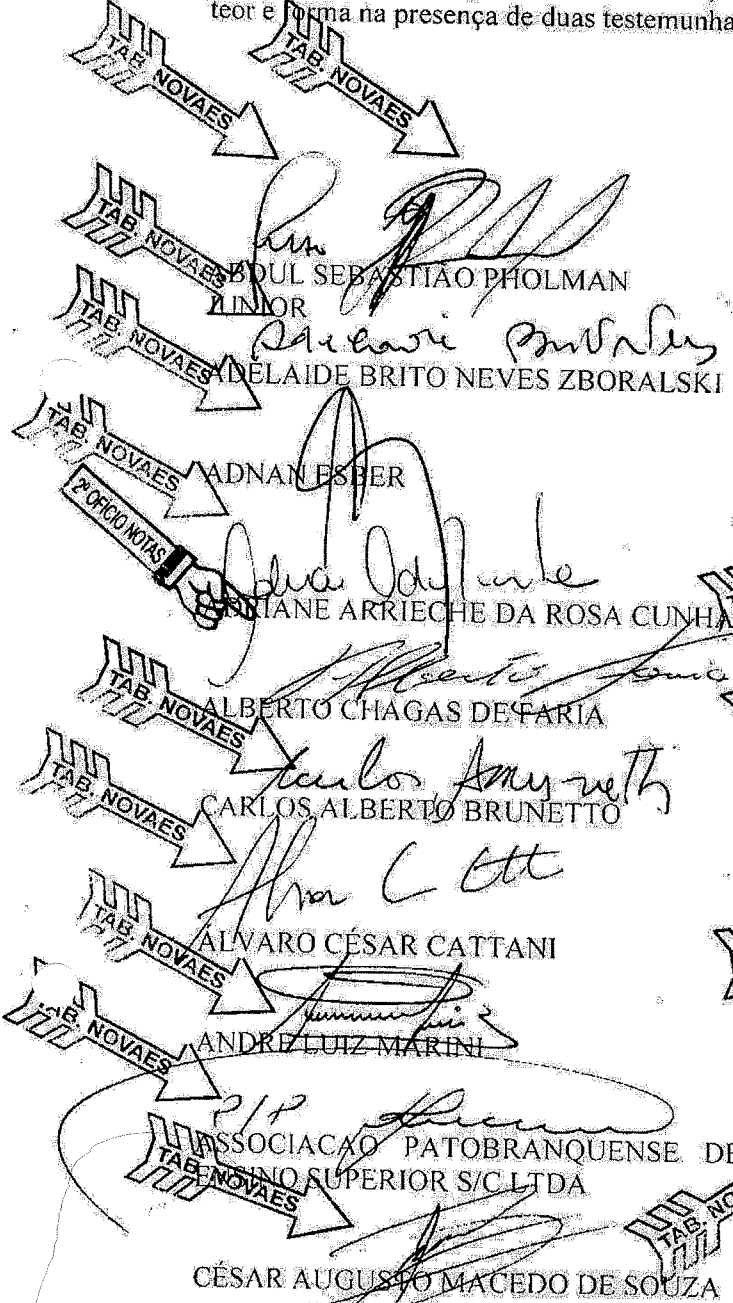 teor e forma na presença de duas testemunha
TAB. NOVAES
TAB. NOVAES
TAB. NOVAES
ABDUL SEBASTIÃO PHOLMAN
JUNIOR
TAB. NOVAES
ADELAIDE BRITO NEVES ZBORALSKI
TAB. NOVAES
ADNAN ESBER
2º OFÍCIO NOTAS
ADRIANE ARRIECHE DA ROSA CUNHA
TAB. NOVAES
ALBERTO CHAGAS DE FARIA
TAB. NOVAES
CARLOS ALBERTO BRUNETTO
TAB. NOVAES
ÁLVARO CÉSAR CATTANI
TAB. NOVAES
ANDRE LUIZ MARINI
P/P
ASSOCIACAO PATOBRANQUENSE DE
TAB. NOVAES
ENSINO SUPERIOR S/C LTDA
TAB. NO
CÉSAR AUGUSTO MACEDO DE SOUZA